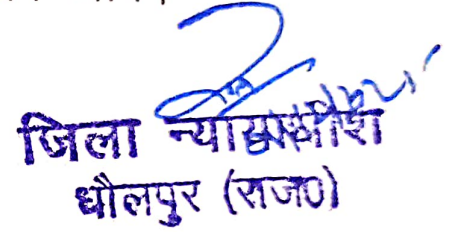 जिला न्यायाधीश
धौलपुर (राज0)